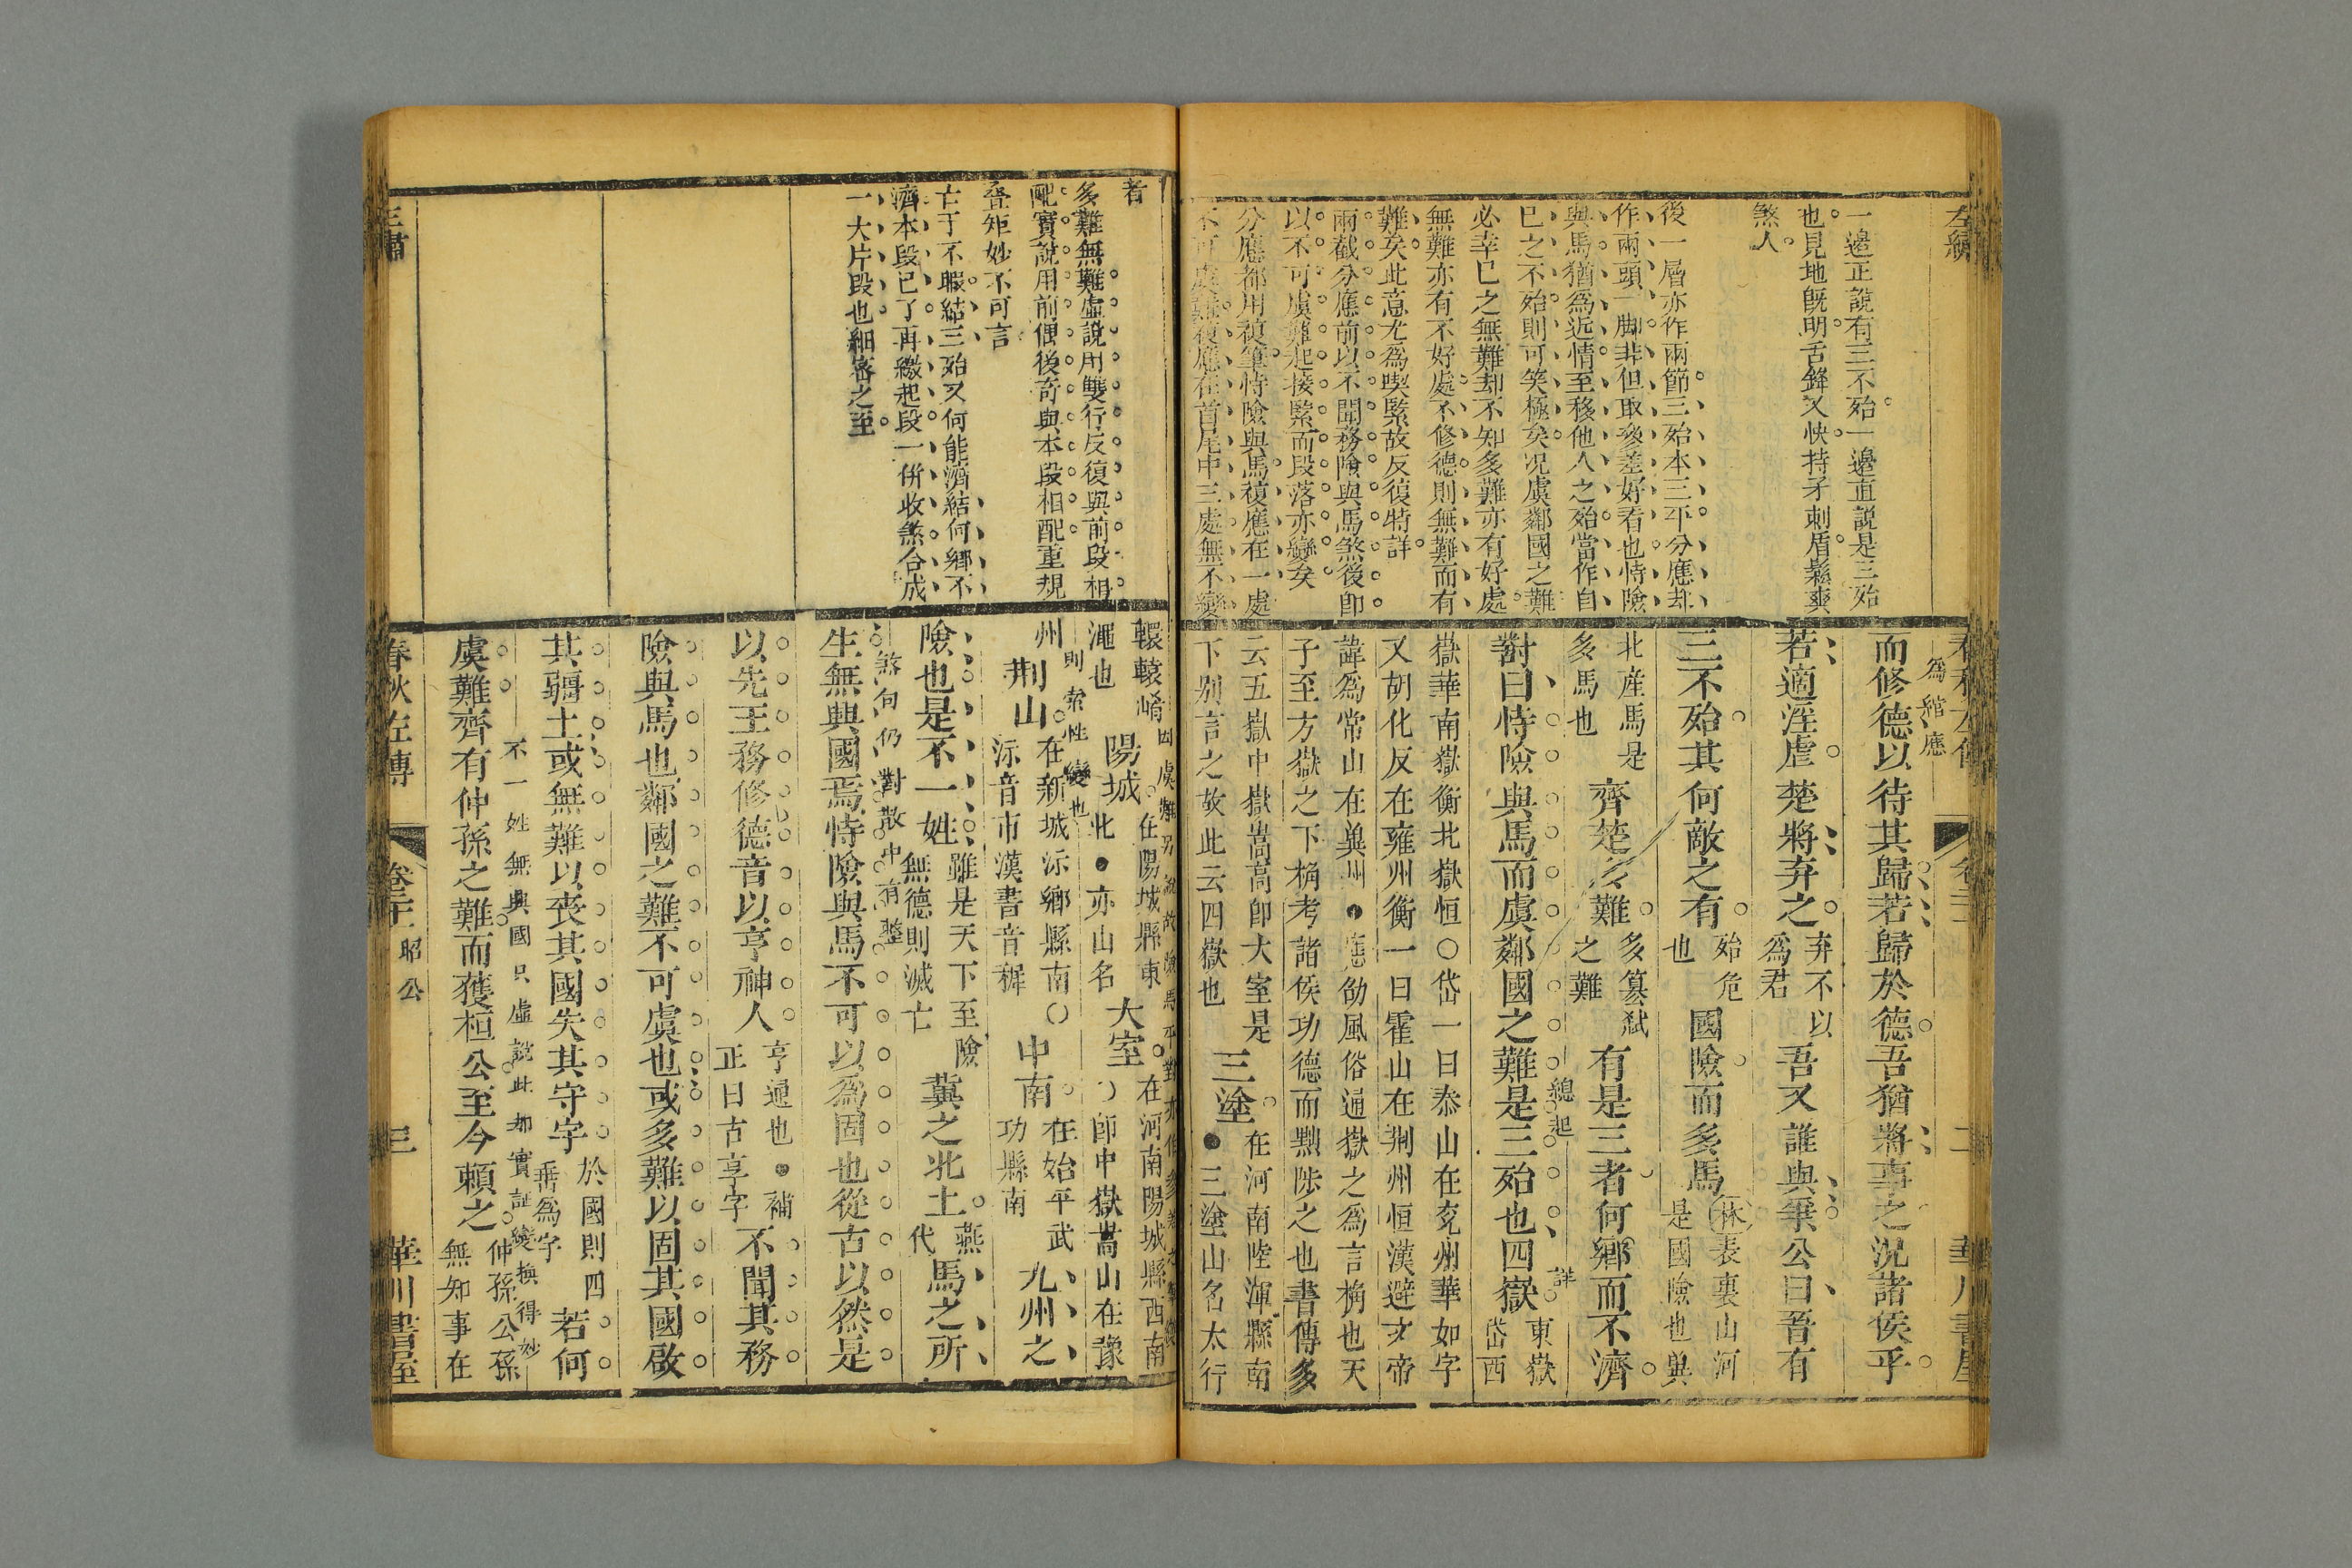 左繡
一邊正說有三不殆一邊直說是三殆
也見地旣明舌鋒又快持矛刺盾鬆爽
煞人
後一層亦作兩節三殆本三平分應却
作兩頭一脚非但取參差好看也恃險
與馬猶為近情至移他人之殆當作自
已之不殆則可笑極矣况虞鄰國之難
必幸已之無難却不知多難亦有好處
無難亦有不好處不修德則無難而有
難矣此意尤為喫緊故反復特詳
兩截分應前以不聞務險與馬煞後卽
以不可虞難起接緊而段落亦變矣
分應都用複筆恃險與馬複應在一處
不可虞難複應在首尾中三處無不變
春秋左傳
華川書屋
為綰應
而修德以待其歸若歸於德吾猶將事之況諸侯乎
若適淫虐楚將弃之弃不以為君吾又誰與爭公曰吾有
三不殆其何敵之有殆危也國險而多馬林表裏山河是國險也兾
北産馬是多馬也齊楚多難多篡弑之難有是三者何鄉而不濟
總起
詳
對曰恃險與馬而虞鄰國之難是三殆也四嶽東嶽岱西
嶽華南嶽衡北嶽恒○岱一曰泰山在兗州華如字
又胡化反在雍州衡一曰霍山在荆州恒漢避文帝
諱為常山在兾州●應劭風俗通嶽之為言桷也天
子至方嶽之下桷考諸侯功德而黜陟之也書傳多
云五嶽中嶽嵩高卽大室是三塗在河南陸渾縣南
下别言之故此云四嶽也●三塗山名太行
者
多難無難虛說用雙行反復與前段相
配實說用前偶後奇與本段相配重規
疊矩妙不可言
亡于不暇結三殆又何能濟結何鄉不
濟本段已了再繳起段一併收煞合成
一大片段也細密之至
轘轅崤澠也陽城在陽城縣東北●亦山名大室在河南陽城縣西南○卽中嶽嵩山在豫
則索性變也
州荆山在新城沶鄉縣南○沶音市漢書音穉中南在始平武功縣南九州之
險也是不一姓雖是天下至險無德則滅亡冀之北土燕代馬之所
煞句仍對散中有整
生無興國焉恃險與馬不可以為固也從古以然是
以先王務修德音以亨神人亨通也●補正曰古享字不聞其務
險與馬也鄰國之難不可虞也或多難以固其國啟
其疆土或無難以喪其國失其守宇於國則四垂為宇若何
不一姓無興國只虛說此却實証變換得妙
虞難齊有仲孫之難而獲桓公至今賴之仲孫公孫無知事在
春秋左傳
昭公
三
華川書屋